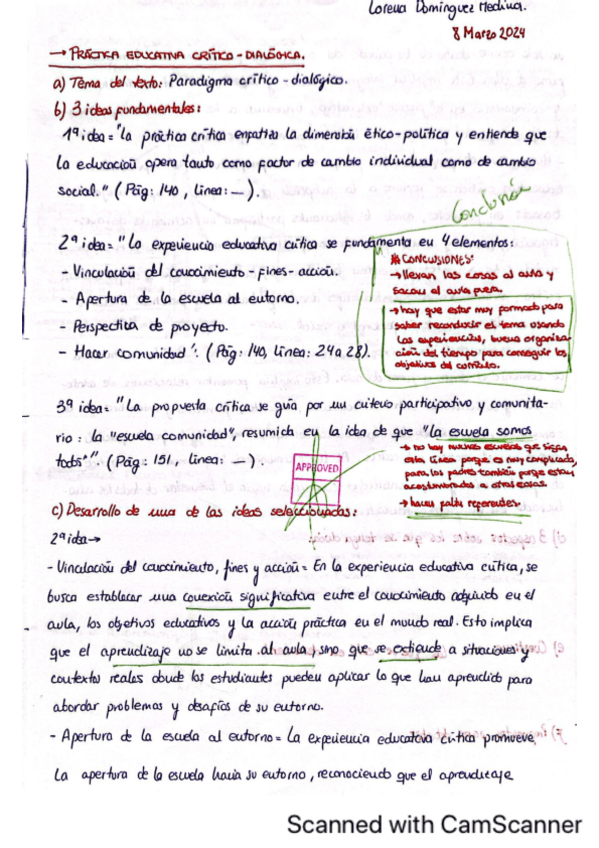 Lorena Domínguez Medina.
8 Marzo 2024
→ PRÁCTICA EDUCATIVA CRÍTICO-DIALÓGICA.
a) Tema del texto: Paradigma crítico-dialógico.
b) 3 ideas fundamentales:
1ª idea= "la práctica crítica enfatiza la dimensión ético-política y entiende que
la educación opera tanto como factor de cambio individual como de cambio
social." (Pág: 140, línea: —).
Conclusión
2ª idea= "La experiencia educativa crítica se fundamenta en 4 elementos:
- Vinculación del conocimiento-fines-acción.
- Apertura de la escuela al entorno.
- Perspectiva de proyecto.
- Hacer comunidad". (Pág: 140, línea: 24 a 28).
* CONCLUSIONES:
→ llevan las cosas al aula y
sacan el aula fuera.
→ hay que estar muy formado para
saber reconducir el tema usando
las experiencias, buena organiza-
ción del tiempo para conseguir los
objetivos del currículo.
3ª idea= "La propuesta crítica se guía por un criterio participativo y comunita-
rio: la "escuela comunidad", resumida en la idea de que "la escuela somos
todos"" (Pág: 151, línea: —).
→ no hay muchas escuelas que sigan
esta línea porque es muy complicada,
para los padres también porque están
acostumbrados a otras cosas.
→ hacen falta referentes
APPROVED
c) Desarrollo de una de las ideas seleccionadas:
2ª idea→
- Vinculación del conocimiento, fines y acción= En la experiencia educativa crítica, se
busca establecer una conexión significativa entre el conocimiento adquirido en el
aula, los objetivos educativos y la acción práctica en el mundo real. Esto implica
que el aprendizaje no se limita al aula, sino que se extiende a situaciones y
contextos reales donde los estudiantes pueden aplicar lo que han aprendido para
abordar problemas y desafíos de su entorno.
- Apertura de la escuela al entorno= La experiencia educativa crítica promueve
la apertura de la escuela hacia su entorno, reconociendo que el aprendizaje
Scanned with CamScanner